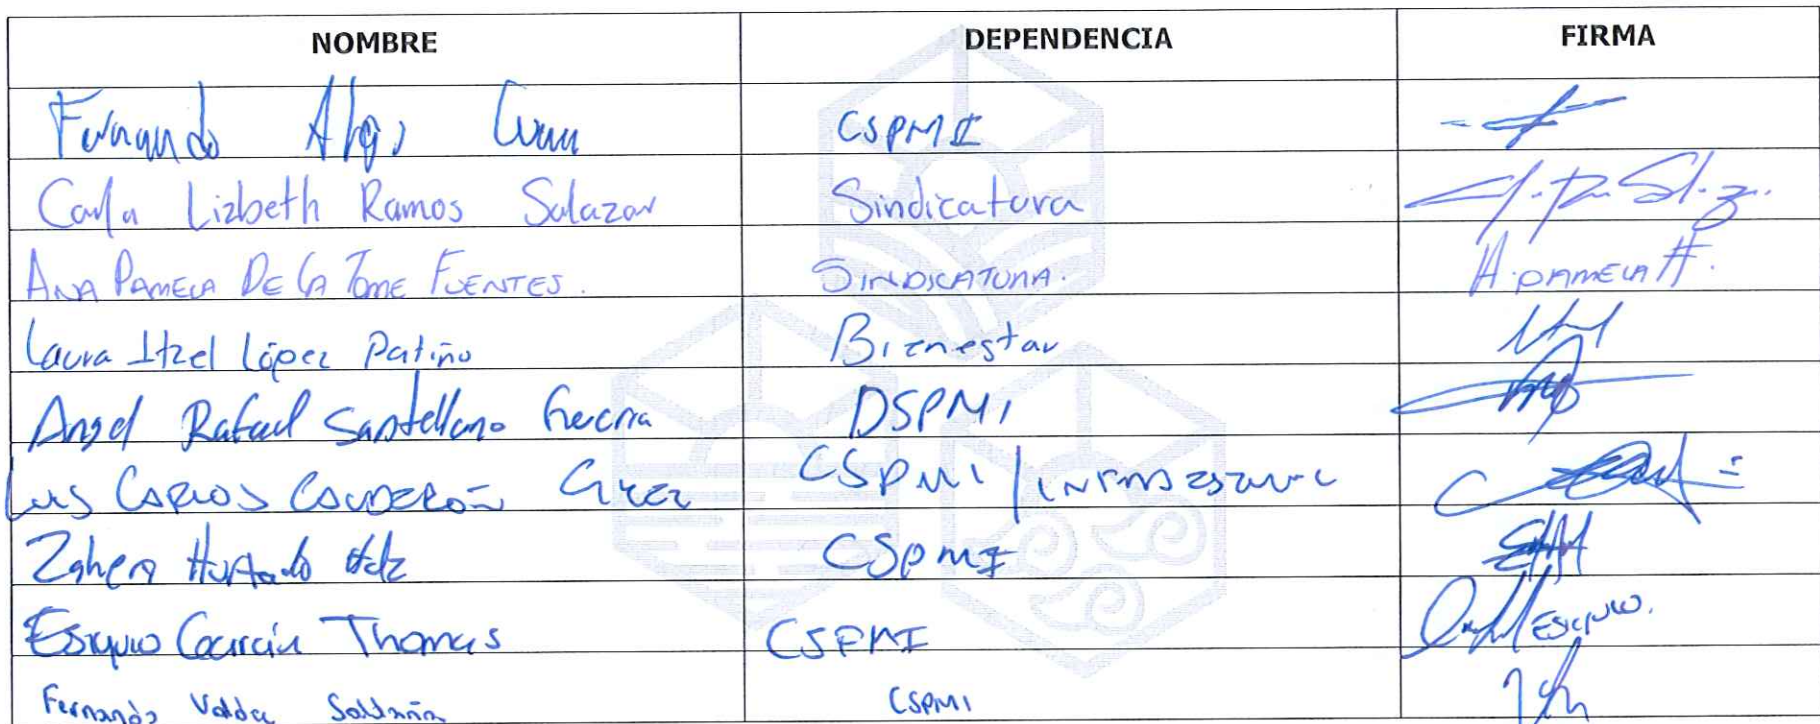 NOMBRE DEPENDENCIA FIRMA
Fernando CSPMI
Carla Lizbeth Ramos Salazar Sindicatura
ANA PAMELA DE LA TORRE FUENTES. SINDICATURA. A. PAMELA F.
Laura Itzel López Patiño Bienestar
Angel Rafael Santellano DSPMI
Luis CARLOS CALDERÓN CSPMI /
Hurtado Hdz CSPMI
Esiquio García Thomas CSPMI ESIQUIO.
Fernando Saldaña CSPMI